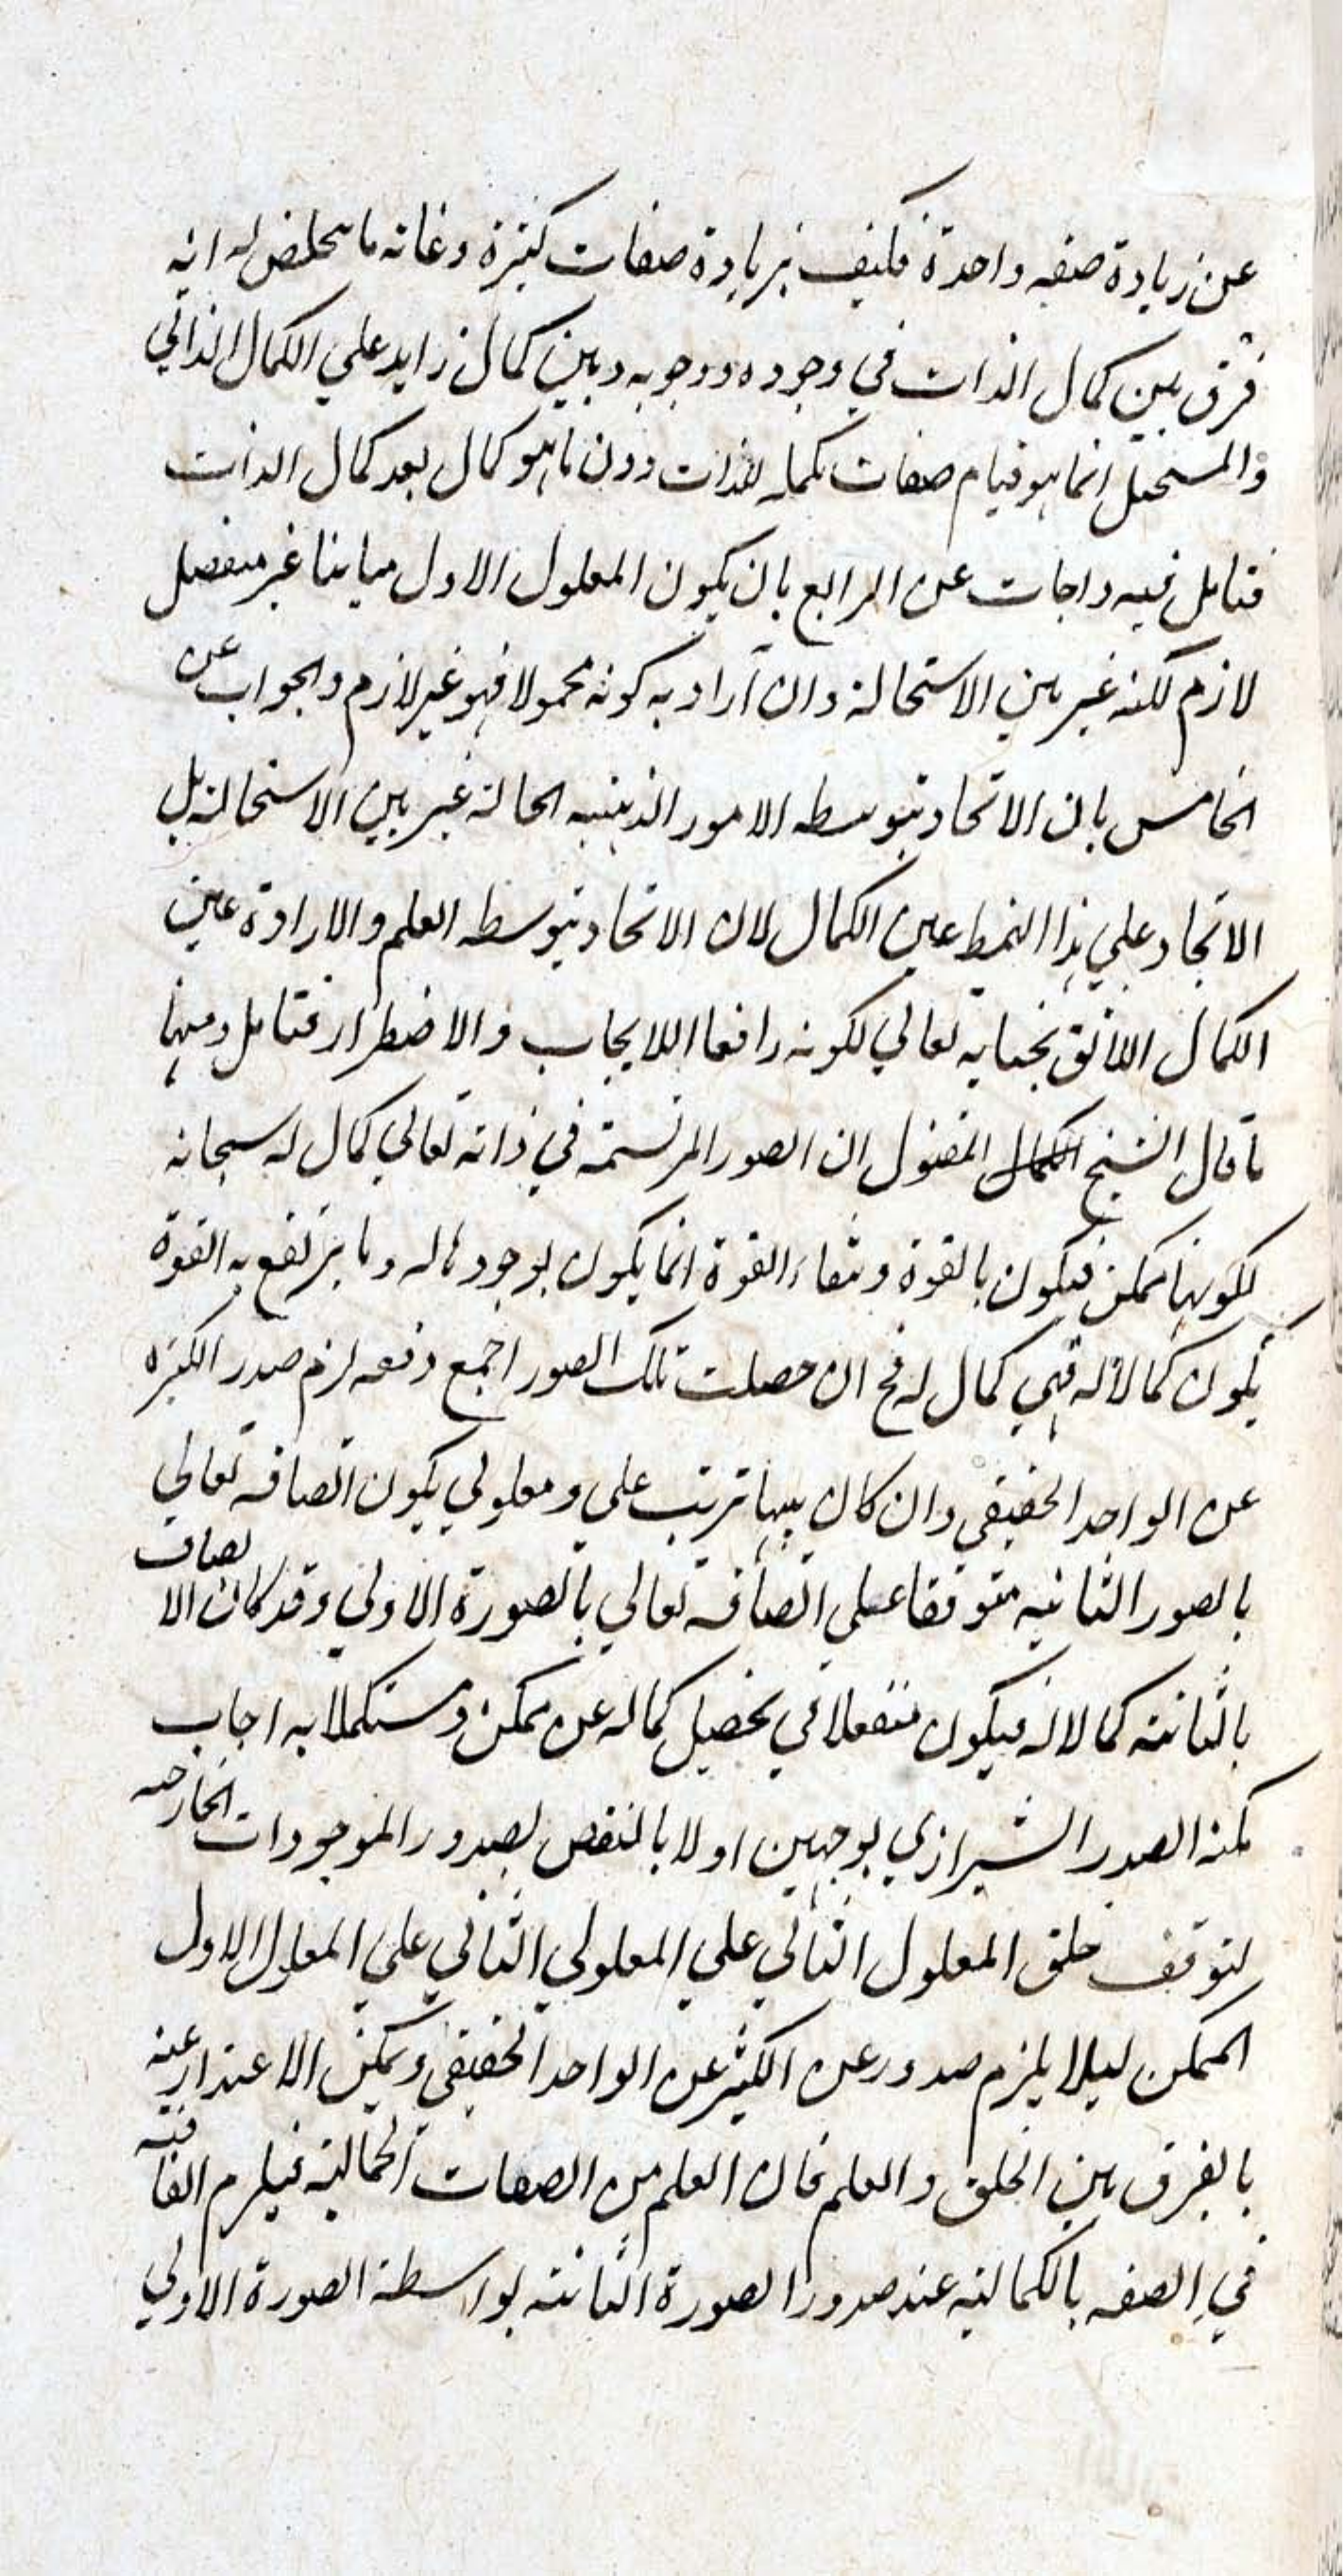 عن زيادة صفه واحدة فكيف بزيادة صفات كثيرة وغاته ما يتخلص له انه
فرق بين كمال الذات في وجوده ووجوبه وبين كمال زايد علي الكمال الذاتي
والمستحيل انما هو قيام صفات مكمله للذات دون ما هو كمال بعد كمال الذات
فتامل فيه واجاب عن الرابع بان يكون المعلول الاول مباينا غير منفصل
لازم لكنه غير بين الاستحالة وان اراد به كونه محمولا فهو غير لازم والجواب عن
الخامس بان الاتحاد بتوسطه الامور الذهنيه الحالة غير بين الاستحالة بل
الاتجاد علي هذا النمط عين الكمال لان الاتحاد بتوسطه العلم والارادة عين
الكمال اللائق بجنابه تعالي لكونه رافعا اللايجاب والاضطرار فتامل ومنها
ما قال الشيخ المقتول ان الصور المرتسمة في ذاته تعالي كمال له سبحانه
لكونها ممكن فيكون بالقوة وبقاء القوة انما يكون بوجود ماله وما يرتفع به القوة
يكون كمالا له فهي كمال له فح ان حصلت تلك الصور اجمع دفعه لزم صدر الكثره
عن الواحد الحقيقي وان كان بينها ترتب علي ومعلولي يكون اتصافه تعالي
بالصور الثانيه متوقفا علي اتصافه تعالي بالصورة الاولي وقد كان الاتصاف
بالثانيه كمالا له فيكون منفعلا في تحصيل كماله عن ممكن ومستكملا به اجاب
عنه الصدر الشيرازي بوجهين اولا بالنقض بصدور الموجودات الخارجه
لتوقف خلق المعلول الثاني علي المعلولي الثاني علي المعلول الاول
الممكن ليلا يلزم صدور عن الكثير عن الواحد الحقيقي ويمكن الاعتذار عنه
بالفرق بين الخلق والعلم فان العلم من الصفات الكمالية فيلزم الفاقته
في الصفه بالكماليه عند صدور الصورة الثانيه بواسطة الصورة الاولي